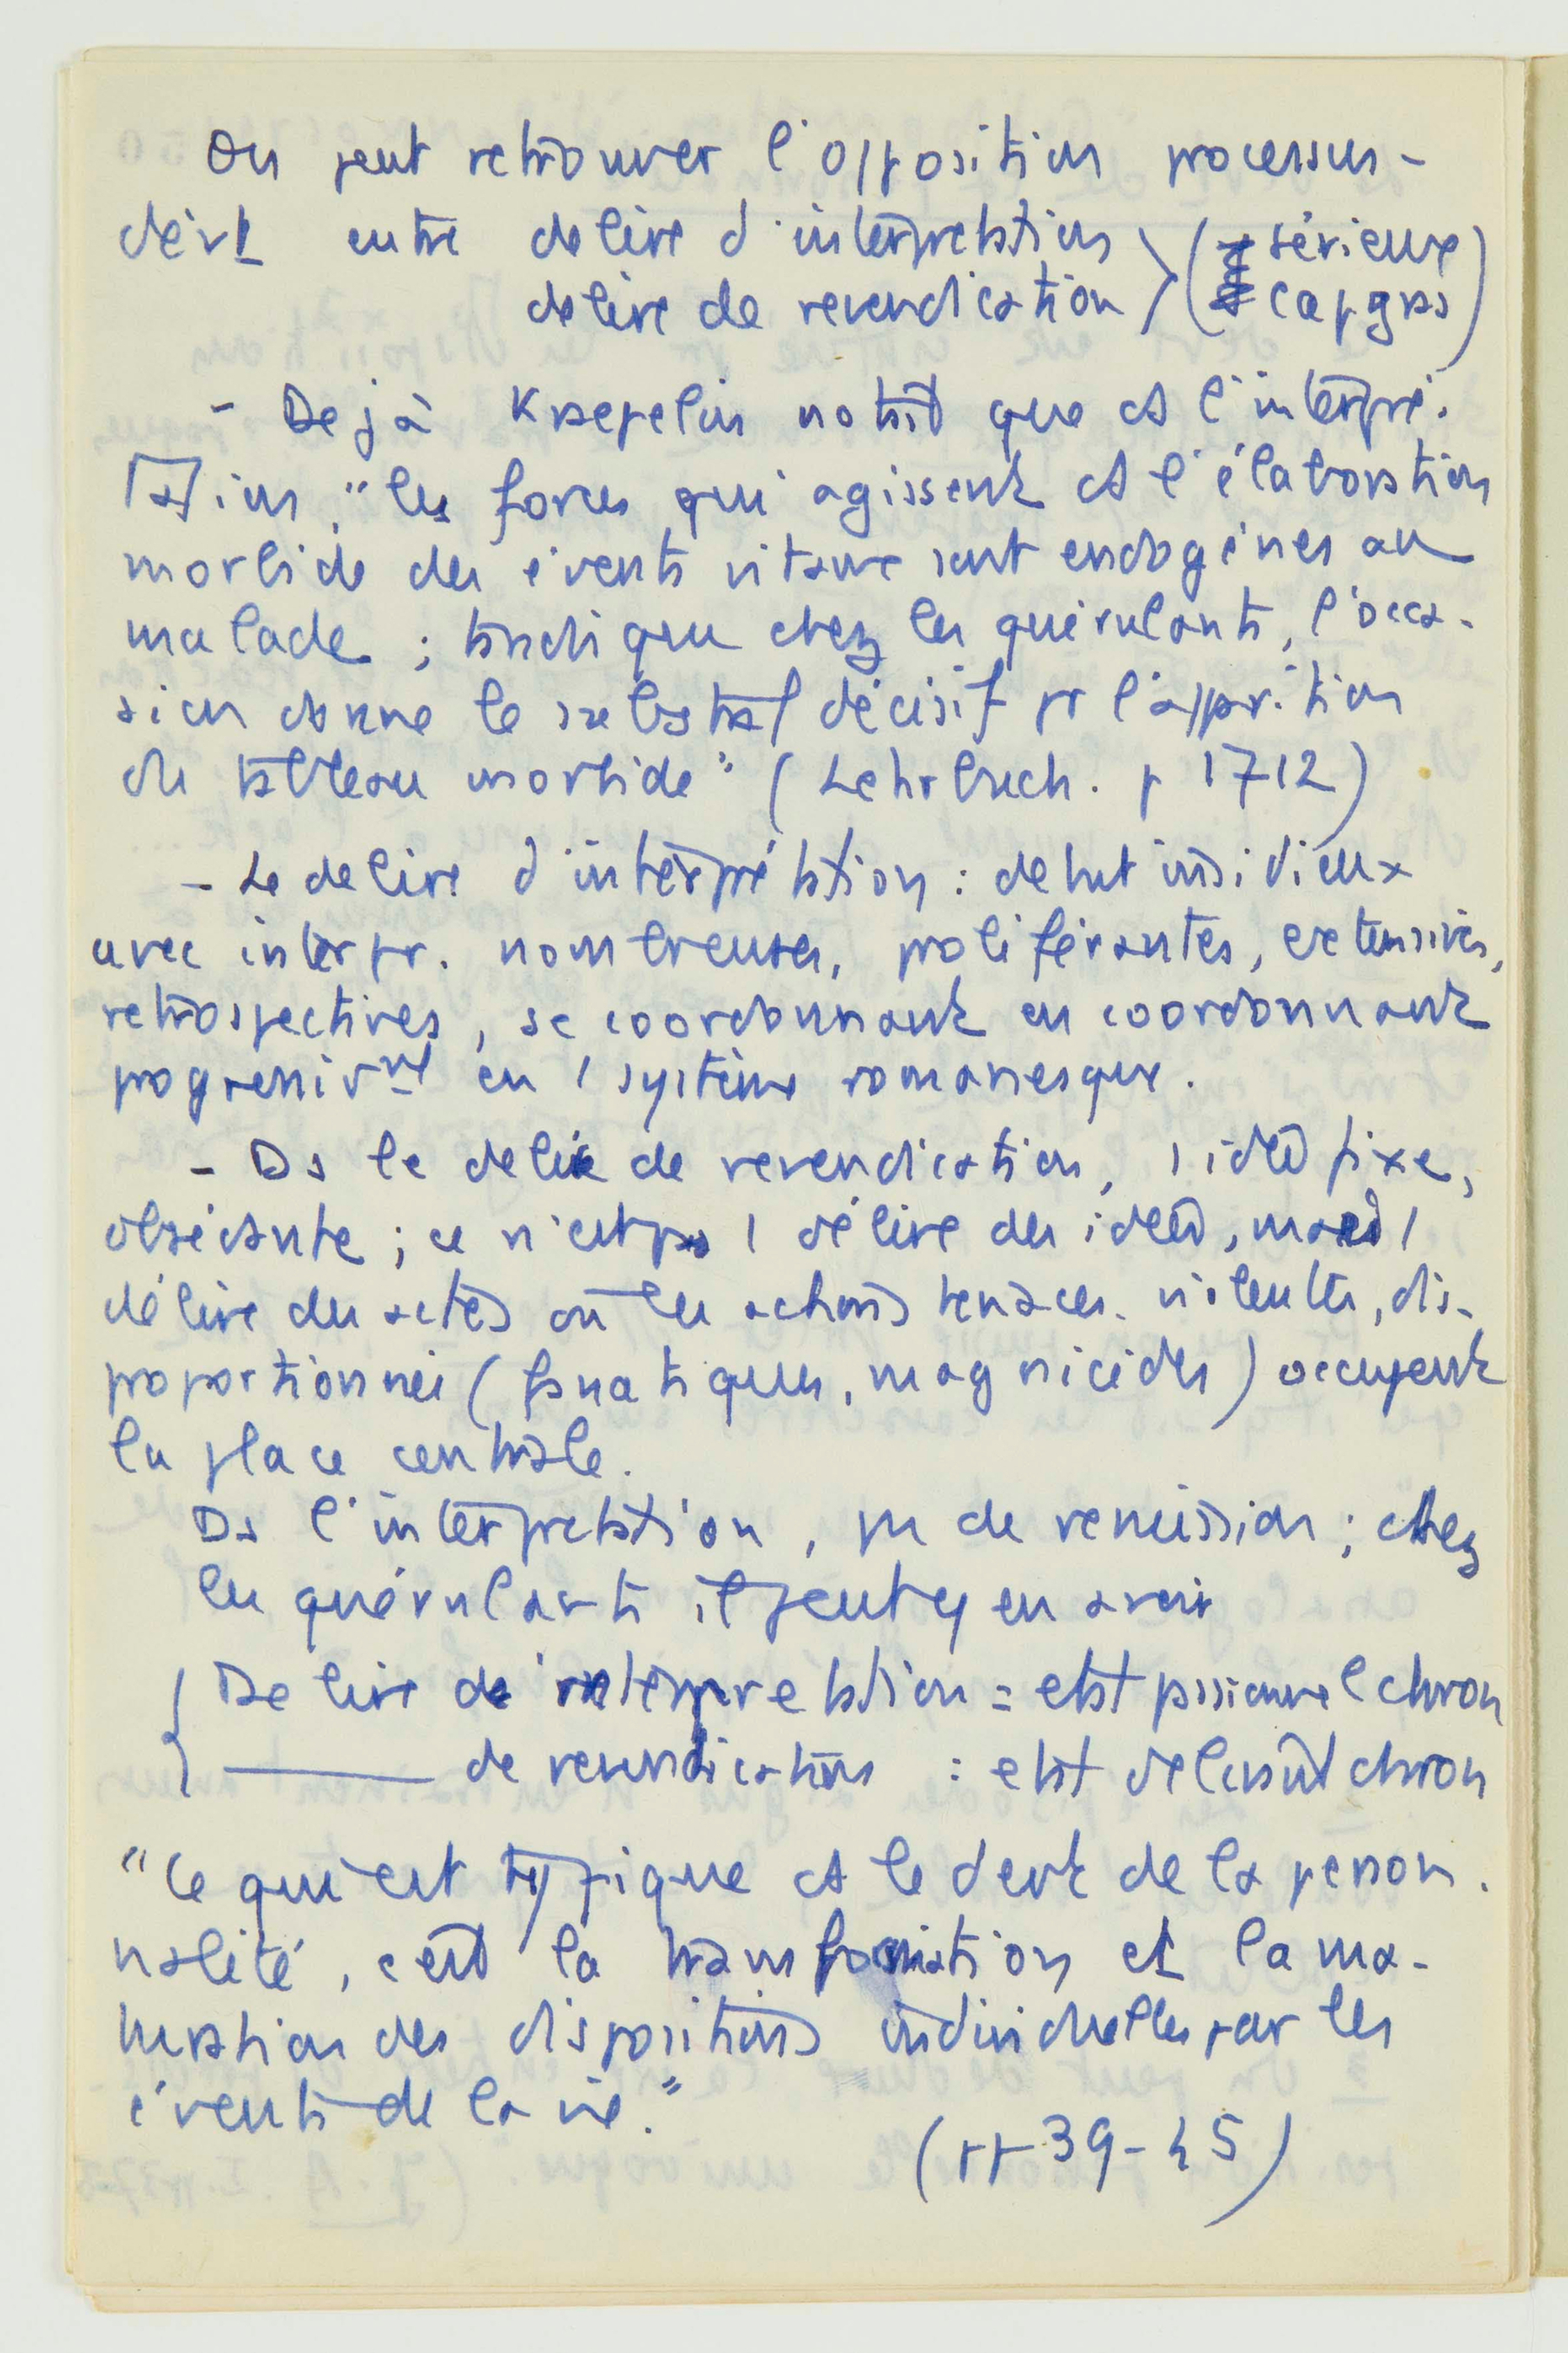 On peut retrouver l'opposition processus-
dévt entre delire d'interpretation } (Sérieux
delire de revendication } Capgras)
- Dejà Kraepelin notait que ds l'interpré-
tation, "les forces qui agissent ds l'élaboration
morbide des événts vitaux sont endogènes au
malade ; tandis que chez les quérulants, l'occa-
sion donne le substrat décisif pr l'apparition
du tableau morbide" (Lehrbuch. p 1712)
- Le delire d'interprétation : debut insidieux
avec interpr. nombreuses, proliférantes, extensives,
retrospectives, se coordonnant en coordonnant
progressivmt en 1 système romanesque.
- Ds le delire de revendication, 1 idée fixe,
obsédante ; ce n'est pas 1 délire des idées, mais 1
délire des actes où les actions tenaces, violentes, dis-
proportionnées (fanatiques, magnicides) occupent
la place centrale.
Ds l'interpretation, pas de remission ; chez
les quérulants il peut y en avoir
{ Delire de interpretation = etat passionnel chron
{ ——— de revendications : etat delirant chron
"Ce qui est typique ds le devt de la person-
nalité, c'est la transformation et la ma-
turation des dispositions individuelles par les
événts de la vie."
(pp 39-45)